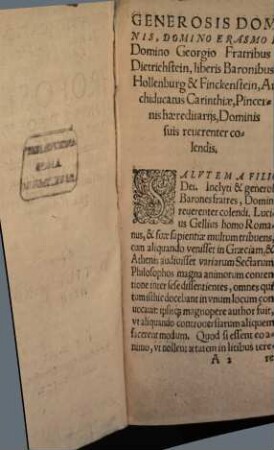 GENEROSIS DOMI
NIS, DOMINO ERASMO
Domino Georgio Fratribus
Dietrichstein, liberis Baronibus
Hollenburg & Finckenstein, Ar
chiducatus Carinthiæ, Pincer-
nis hæreditarijs, Dominis
suis reuerenter co-
lendis,
SALVTEM A FILIO
Dei. Inclyti & generosi
Barones fratres, Domini
reuerenter colendi, Luci
us Gellius homo Roma
nus, & suæ sapientiæ multum tribuens,
cum aliquando venisset in Græciam, &
Athenis audiisset variarum Sectarum
Philosophos magna animorum conten
tione inter sese dissentientes, omnes qui
tum sibi docebant in vnum locum con
uocauit: ipsisq; magnopere author fuit,
vt aliquando controuersiarum aliquem
facerent modum. Quod si essent eo a-
nimo, vt nollent ætatem in litibus tere
A 2